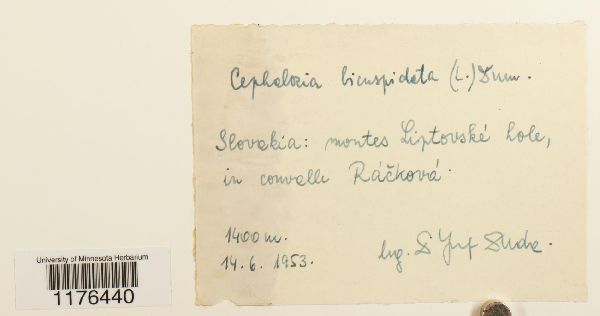 Cephalozia bicuspidata (L.) Dum.
Slovakia: montes Liptovské hole,
in convalle Ráčková.
1400 m.
14. 6. 1953.
University of Minnesota Herbarium
1176440